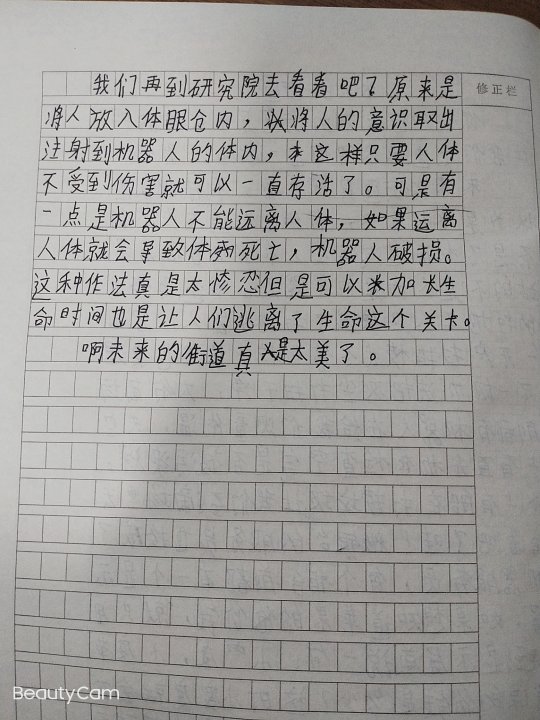 我们再到研究院去看看吧？原来是
修正栏
将人放入休眼仓内，将人的意识取出
注射到机器人的体内，这样只要人体
不受到伤害就可以一直存活了。可是有
一点是机器人不能远离人体，如果远离
人体就会导致体死亡，机器人破损。
这种作法真是太惨忍但是可以加长生
命时间也是让人们逃离了生命这个关卡。
啊未来的街道真是太美了。
BeautyCam